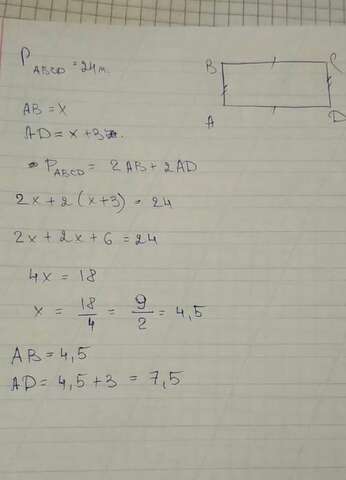 P ABCD = 24м.
B C
A D
AB = x
AD = x+3.
P ABCD = 2AB + 2AD
2x + 2(x+3) = 24
2x + 2x + 6 = 24
4x = 18
x = 18/4 = 9/2 = 4,5
AB = 4,5
AD = 4,5 + 3 = 7,5